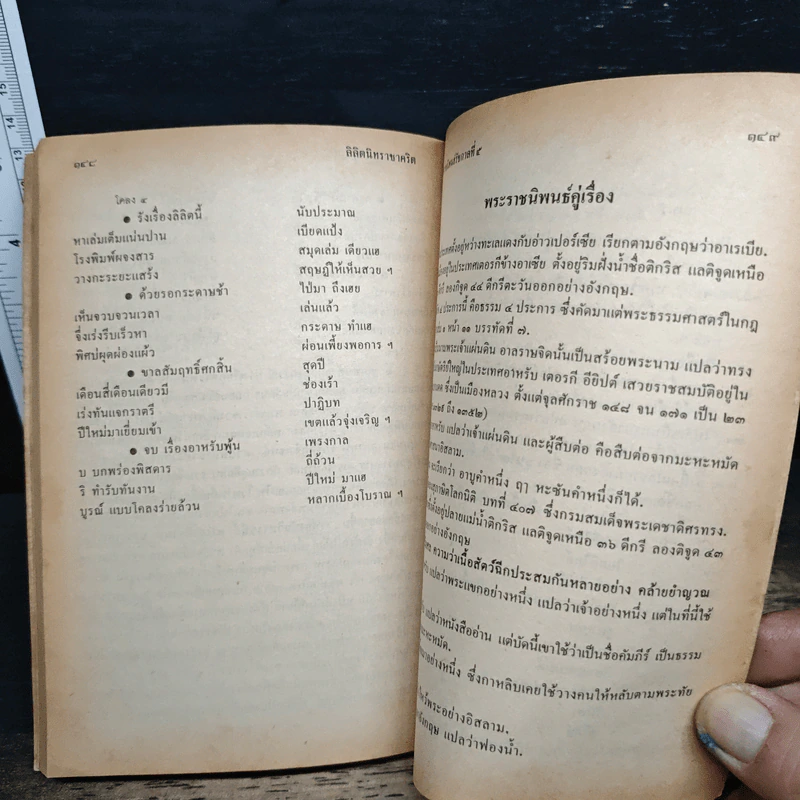 ๑๔๘
ลิลิตนิทราชาคริต
โคลง ๔
● รังเรื่องลิลิตนี้ นับประมาณ
หาเล่มเต็มแน่นปาน เบียดแป้ง
โรงพิมพ์ผจงสาร สมุดเล่ม เดียวแฮ
วางกะระยะแสร้ง สฤษฎิ์ให้เห็นสวย ฯ
● ด้วยรอกระดาษช้า ไป่มา ถึงเฮย
เห็นจวบจวนเวลา เล่นแล้ว
จึ่งเร่งรีบเร็วหา กระดาษ ทำแฮ
พิศปผุดผ่องแผ้ว ผ่อนเพี้ยงพอการ ฯ
● ขาลสัมฤทธิ์ศกสิ้น สุดปี
เดือนสี่เดือนเดียวมี ช่องเร้า
เร่งทันแจกราตรี ปาฏิบท
ปีใหม่มาเยี่ยมเข้า เขตแล้วจุ่งเจริญ ฯ
● จบ เรื่องอาหรับพู้น เพรงกาล
บ บกพร่องพิสดาร ถี่ถ้วน
ริ ทำรับทันงาน ปีใหม่ มาแฮ
บูรณ์ แบบโคลงร่ายล้วน หลากเบื้องโบราณ ฯ
๑๔๙
รัชกาลที่ ๕
พระราชนิพนธ์คู่เรื่อง
ประเทศตั้งอยู่หว่างทะเลแดงกับอ่าวเปอร์เซีย เรียกตามอังกฤษว่าอาเรเบีย.
อยู่ในประเทศเตอรกีข้างอาเซีย ตั้งอยู่ริมฝั่งน้ำชื่อติกริส แลติจูดเหนือ
ลองกิจูด ๔๔ ดีกรีตะวันออกอย่างอังกฤษ.
๔ ประการนี้ คือธรรม ๔ ประการ ซึ่งคัดมาแต่พระธรรมศาสตร์ในกฎ
๑ หน้า ๑๑ บรรทัดที่ ๗.
นามพระเจ้าแผ่นดิน อาลราษจิดนั้นเป็นสร้อยพระนาม แปลว่าทรง
ใหญ่ในประเทศอาหรับ เตอรกี อียิปต์ เสวยราชสมบัติอยู่ใน
ซึ่งเป็นเมืองหลวง ตั้งแต่จุลศักราช ๑๔๘ จน ๑๗๑ เป็น ๒๓
ถึง ๑๓๕๒)
แปลว่าเจ้าแผ่นดิน และผู้สืบต่อ คือสืบต่อจากมะหะหมัด
อิสลาม.
เรียกว่า อาบูคำหนึ่ง ฤๅ หะซันคำหนึ่งก็ได้.
สุภาษิตโลกนิติ บทที่ ๔๐๗ ซึ่งกรมสมเด็จพระเดชาดิศรทรง.
ตั้งอยู่ปลายแม่น้ำติกริส แลติจูดเหนือ ๓๖ ดีกรี ลองติจูด ๔๓
ออกอย่างอังกฤษ
ความว่าเนื้อสัตว์ฉีกประสมกันหลายอย่าง คล้ายยำญวณ
แปลว่าพระแขกอย่างหนึ่ง แปลว่าเจ้าอย่างหนึ่ง แต่ในที่นี้ใช้
แปลว่าหนังสืออ่าน แต่บัดนี้เขาใช้ว่าเป็นชื่อคัมภีร์ เป็นธรรม
มะหะหมัด.
อย่างหนึ่ง ซึ่งกาหลิบเคยใช้วางคนให้หลับตามพระทัย
ไหว้พระอย่างอิสลาม.
อังกฤษ แปลว่าฟองน้ำ.